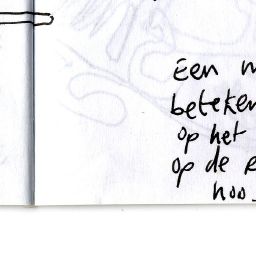 Een m
beteken
op het
op de
hoo